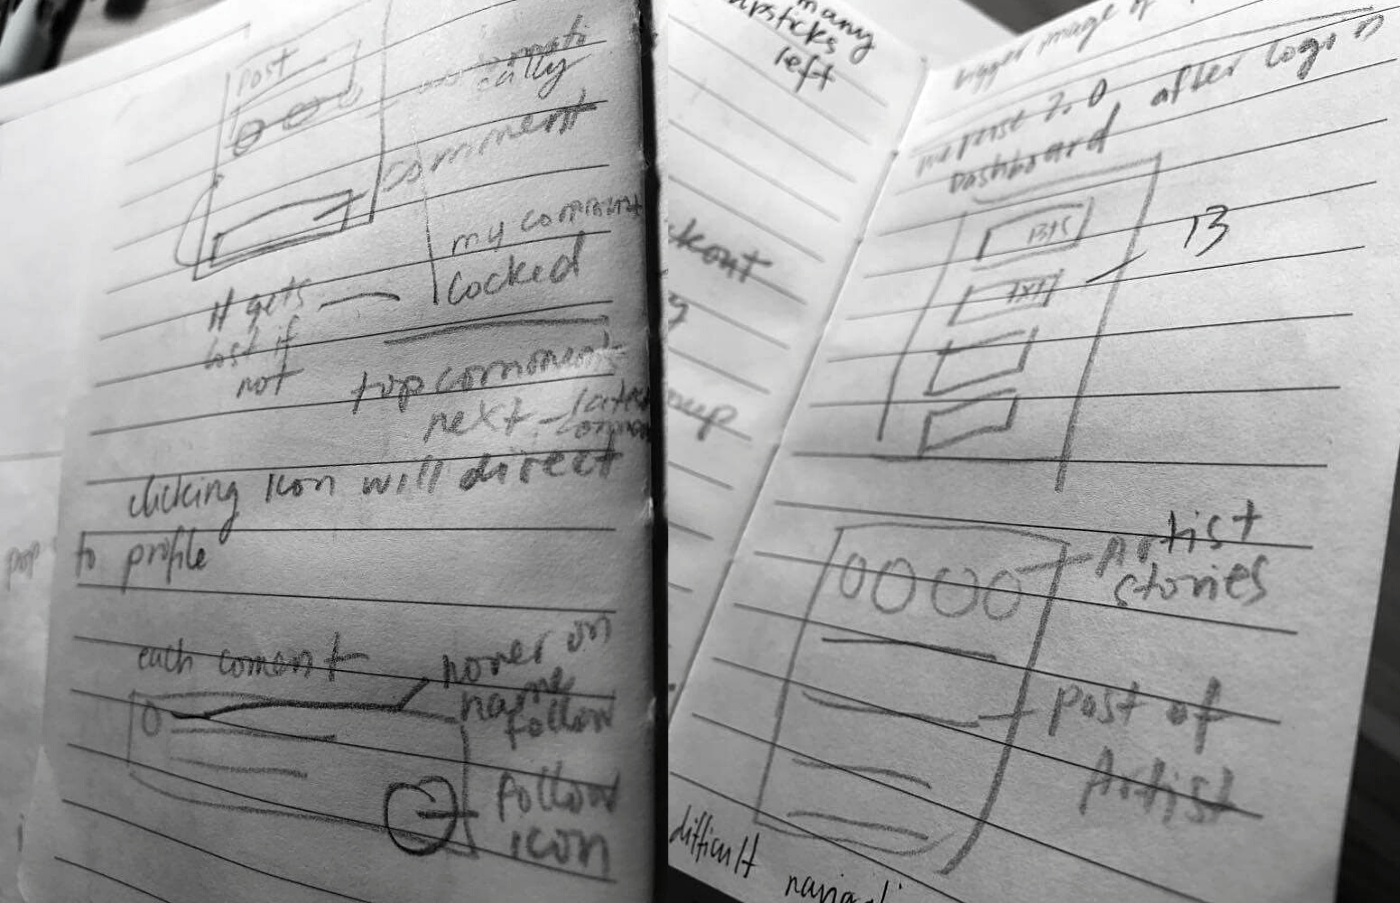 post
cally
comment
my comment
locked
It gets
lost if
not
top comment
next - latest
clicking icon will direct
to profile
each coment
hover on
name
follow
follow
icon
pop
many
left
difficult
bigger image of
2.0, after login
Dashboard
BTS
TXT
13
Artist
stories
post of
Artist